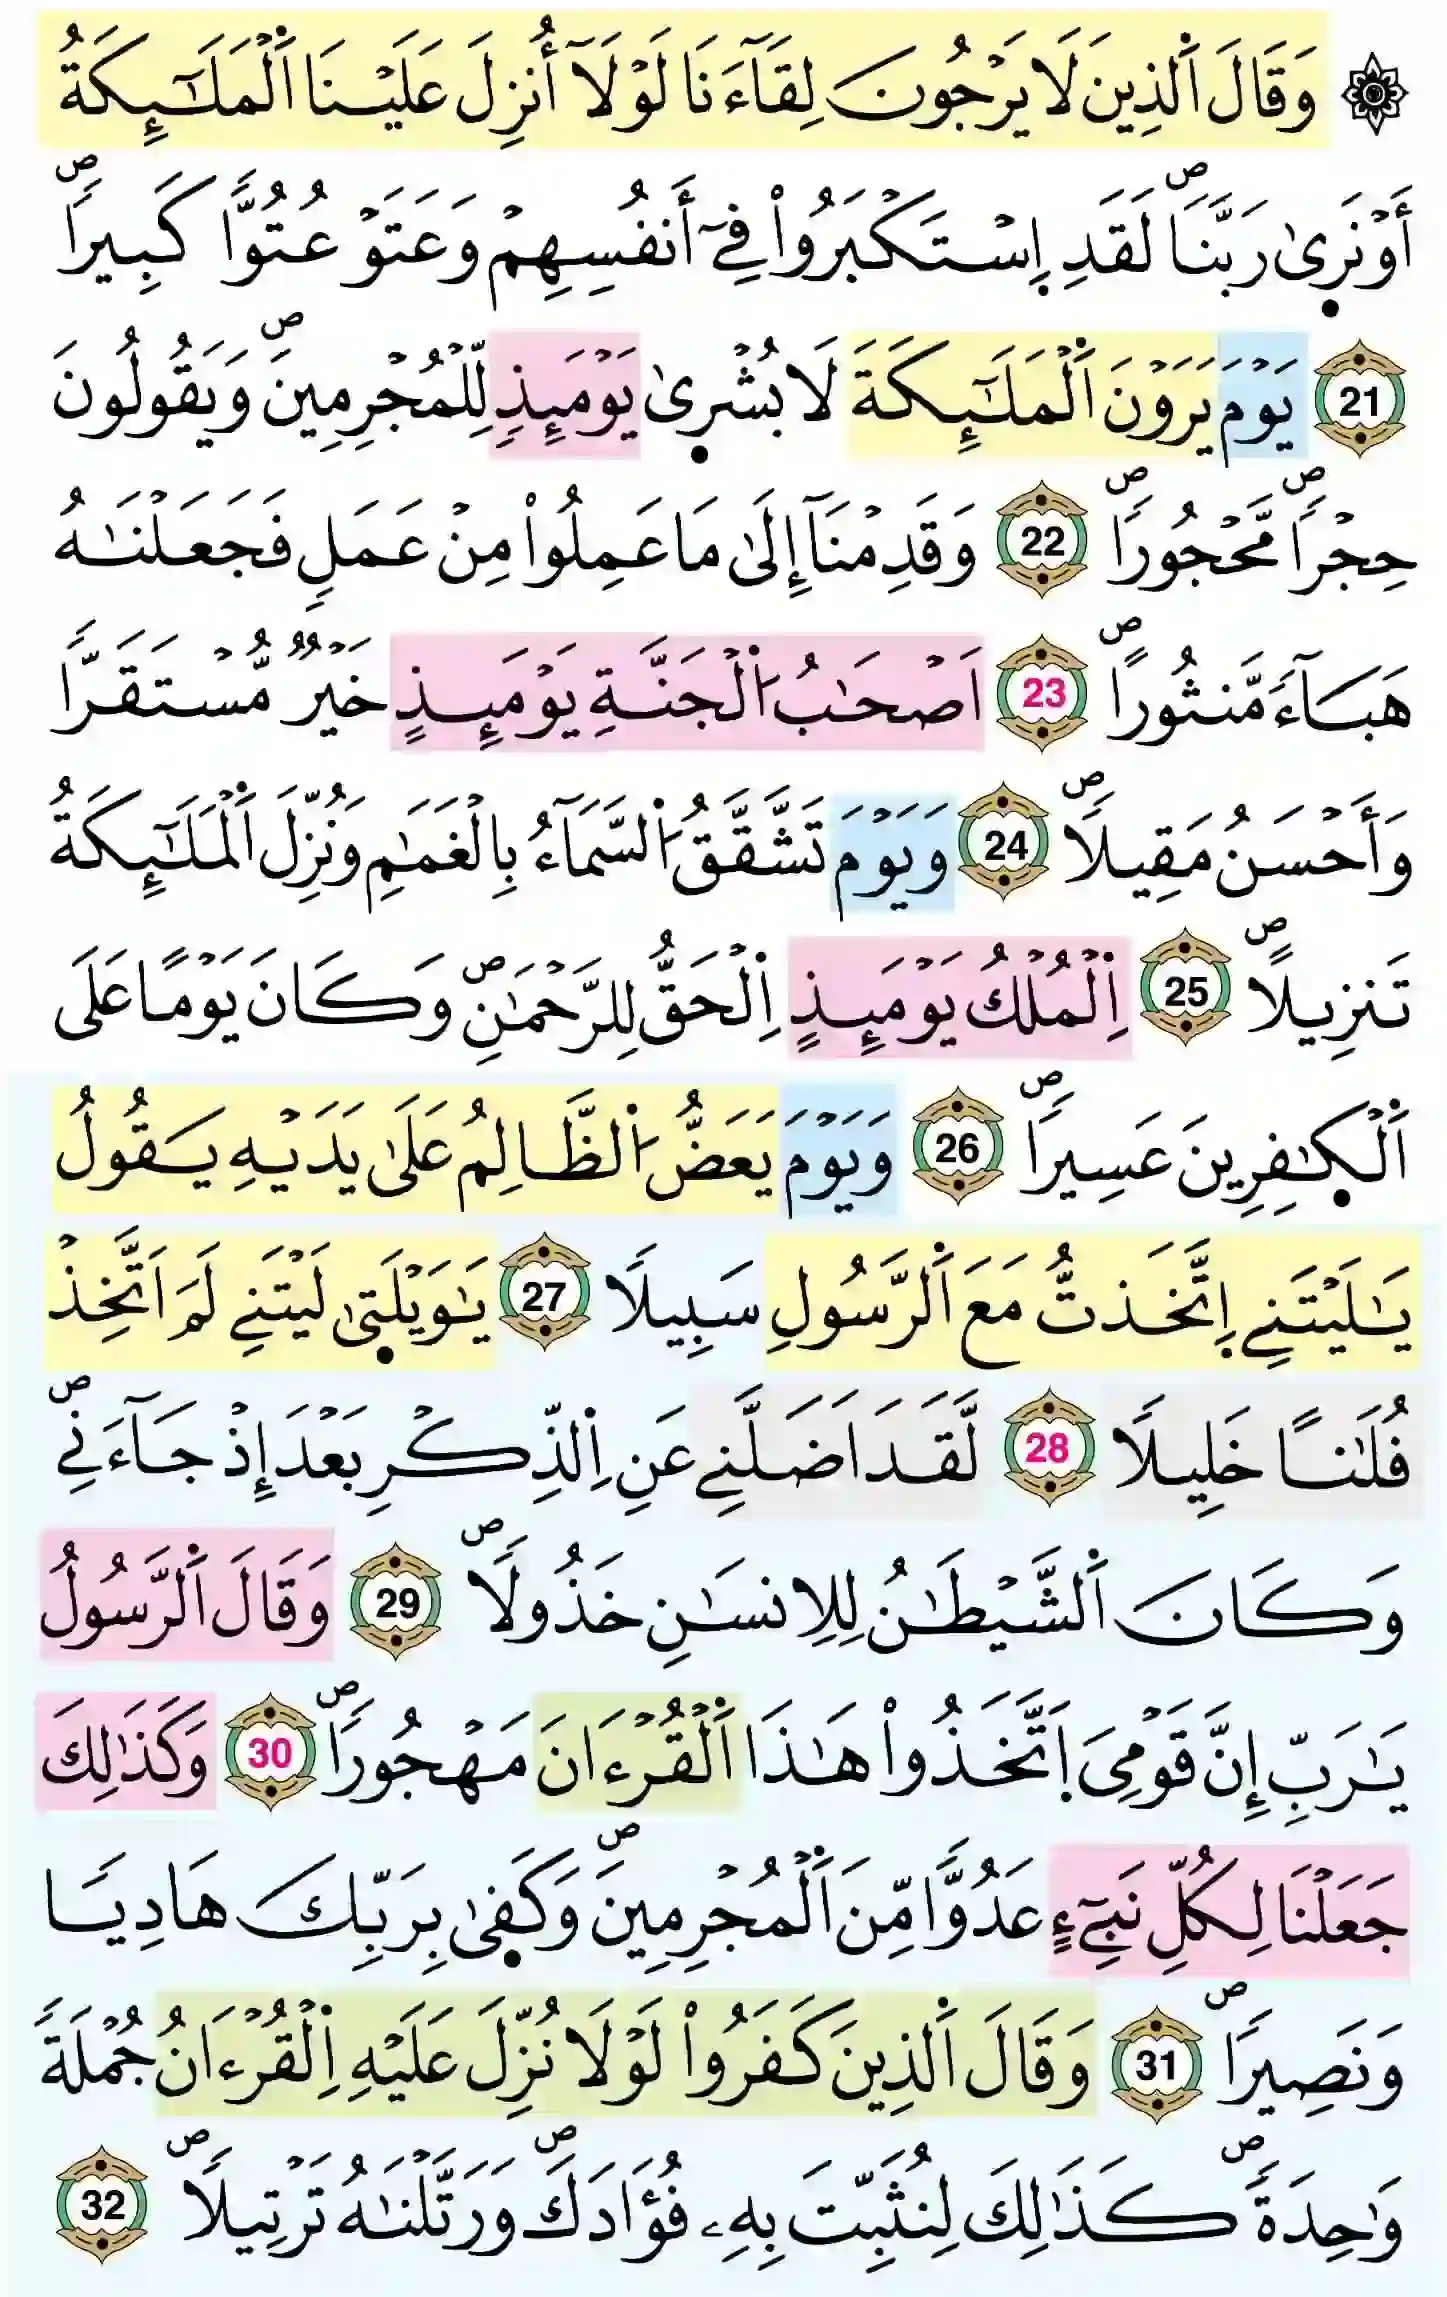 ۞ وَقَالَ اَ۬لذِينَ لَا يَرْجُونَ لِقَآءَنَا لَوْلَآ أُنزِلَ عَلَيْنَا اَ۬لْمَلَٰٓئِكَةُ
أَوْ نَر۪ىٰ رَبَّنَاۖ لَقَدِ اِ۪سْتَكْبَرُواْ فِےٓ أَنفُسِهِمْ وَعَتَوْ عُتُوّاٗ كَبِيراٗۖ
21 يَوْمَ يَرَوْنَ اَ۬لْمَلَٰٓئِكَةَ لَا بُشْر۪ىٰ يَوْمَئِذٖ لِّلْمُجْرِمِينَۖ وَيَقُولُونَ
حِجْراٗۖ مَّحْجُوراٗۖ 22 وَقَدِمْنَآ إِلَىٰ مَا عَمِلُواْ مِنْ عَمَلٖ فَجَعَلْنَٰهُ
هَبَآءٗ مَّنثُوراٗۖ 23 اَصْحَٰبُ اُ۬لْجَنَّةِ يَوْمَئِذٍ خَيْرٞ مُّسْتَقَرّاٗ
وَأَحْسَنُ مَقِيلاٗۖ 24 وَيَوْمَ تَشَّقَّقُ اُ۬لسَّمَآءُ بِالْغَمَٰمِ وَنُزِّلَ اَ۬لْمَلَٰٓئِكَةُ
تَنزِيلاًۖ 25 اِ۬لْمُلْكُ يَوْمَئِذٍ اِ۬لْحَقُّ لِلرَّحْمَٰنِۖ وَكَانَ يَوْماً عَلَى
اَ۬لْكٰ۪فِرِينَ عَسِيراٗۖ 26 وَيَوْمَ يَعَضُّ اُ۬لظَّالِمُ عَلَىٰ يَدَيْهِ يَقُولُ
يَٰلَيْتَنِے اِ۪تَّخَذتُّ مَعَ اَ۬لرَّسُولِ سَبِيلاٗ 27 يَٰوَيْلَت۪ىٰ لَيْتَنِے لَمَ اَتَّخِذْ
فُلَٰناً خَلِيلاٗ 28 لَّقَدَ اَضَلَّنِے عَنِ اِ۬لذِّكْرِ بَعْدَ إِذْ جَآءَنِےۖ
وَكَانَ اَ۬لشَّيْطَٰنُ لِلِانسَٰنِ خَذُولاٗۖ 29 وَقَالَ اَ۬لرَّسُولُ
يَٰرَبِّ إِنَّ قَوْمِيَ اَ۪تَّخَذُواْ هَٰذَا اَ۬لْقُرْءَانَ مَهْجُوراٗۖ 30 وَكَذَٰلِكَ
جَعَلْنَا لِكُلِّ نَبِےٓءٍ عَدُوّاٗ مِّنَ اَ۬لْمُجْرِمِينَۖ وَكَف۪ىٰ بِرَبِّكَ هَادِياٗ
وَنَصِيراٗۖ 31 وَقَالَ اَ۬لذِينَ كَفَرُواْ لَوْلَا نُزِّلَ عَلَيْهِ اِ۬لْقُرْءَانُ جُمْلَةٗ
وَٰحِدَةٗۖ كَذَٰلِكَ لِنُثَبِّتَ بِهِۦ فُؤَادَكَۖ وَرَتَّلْنَٰهُ تَرْتِيلاٗۖ 32